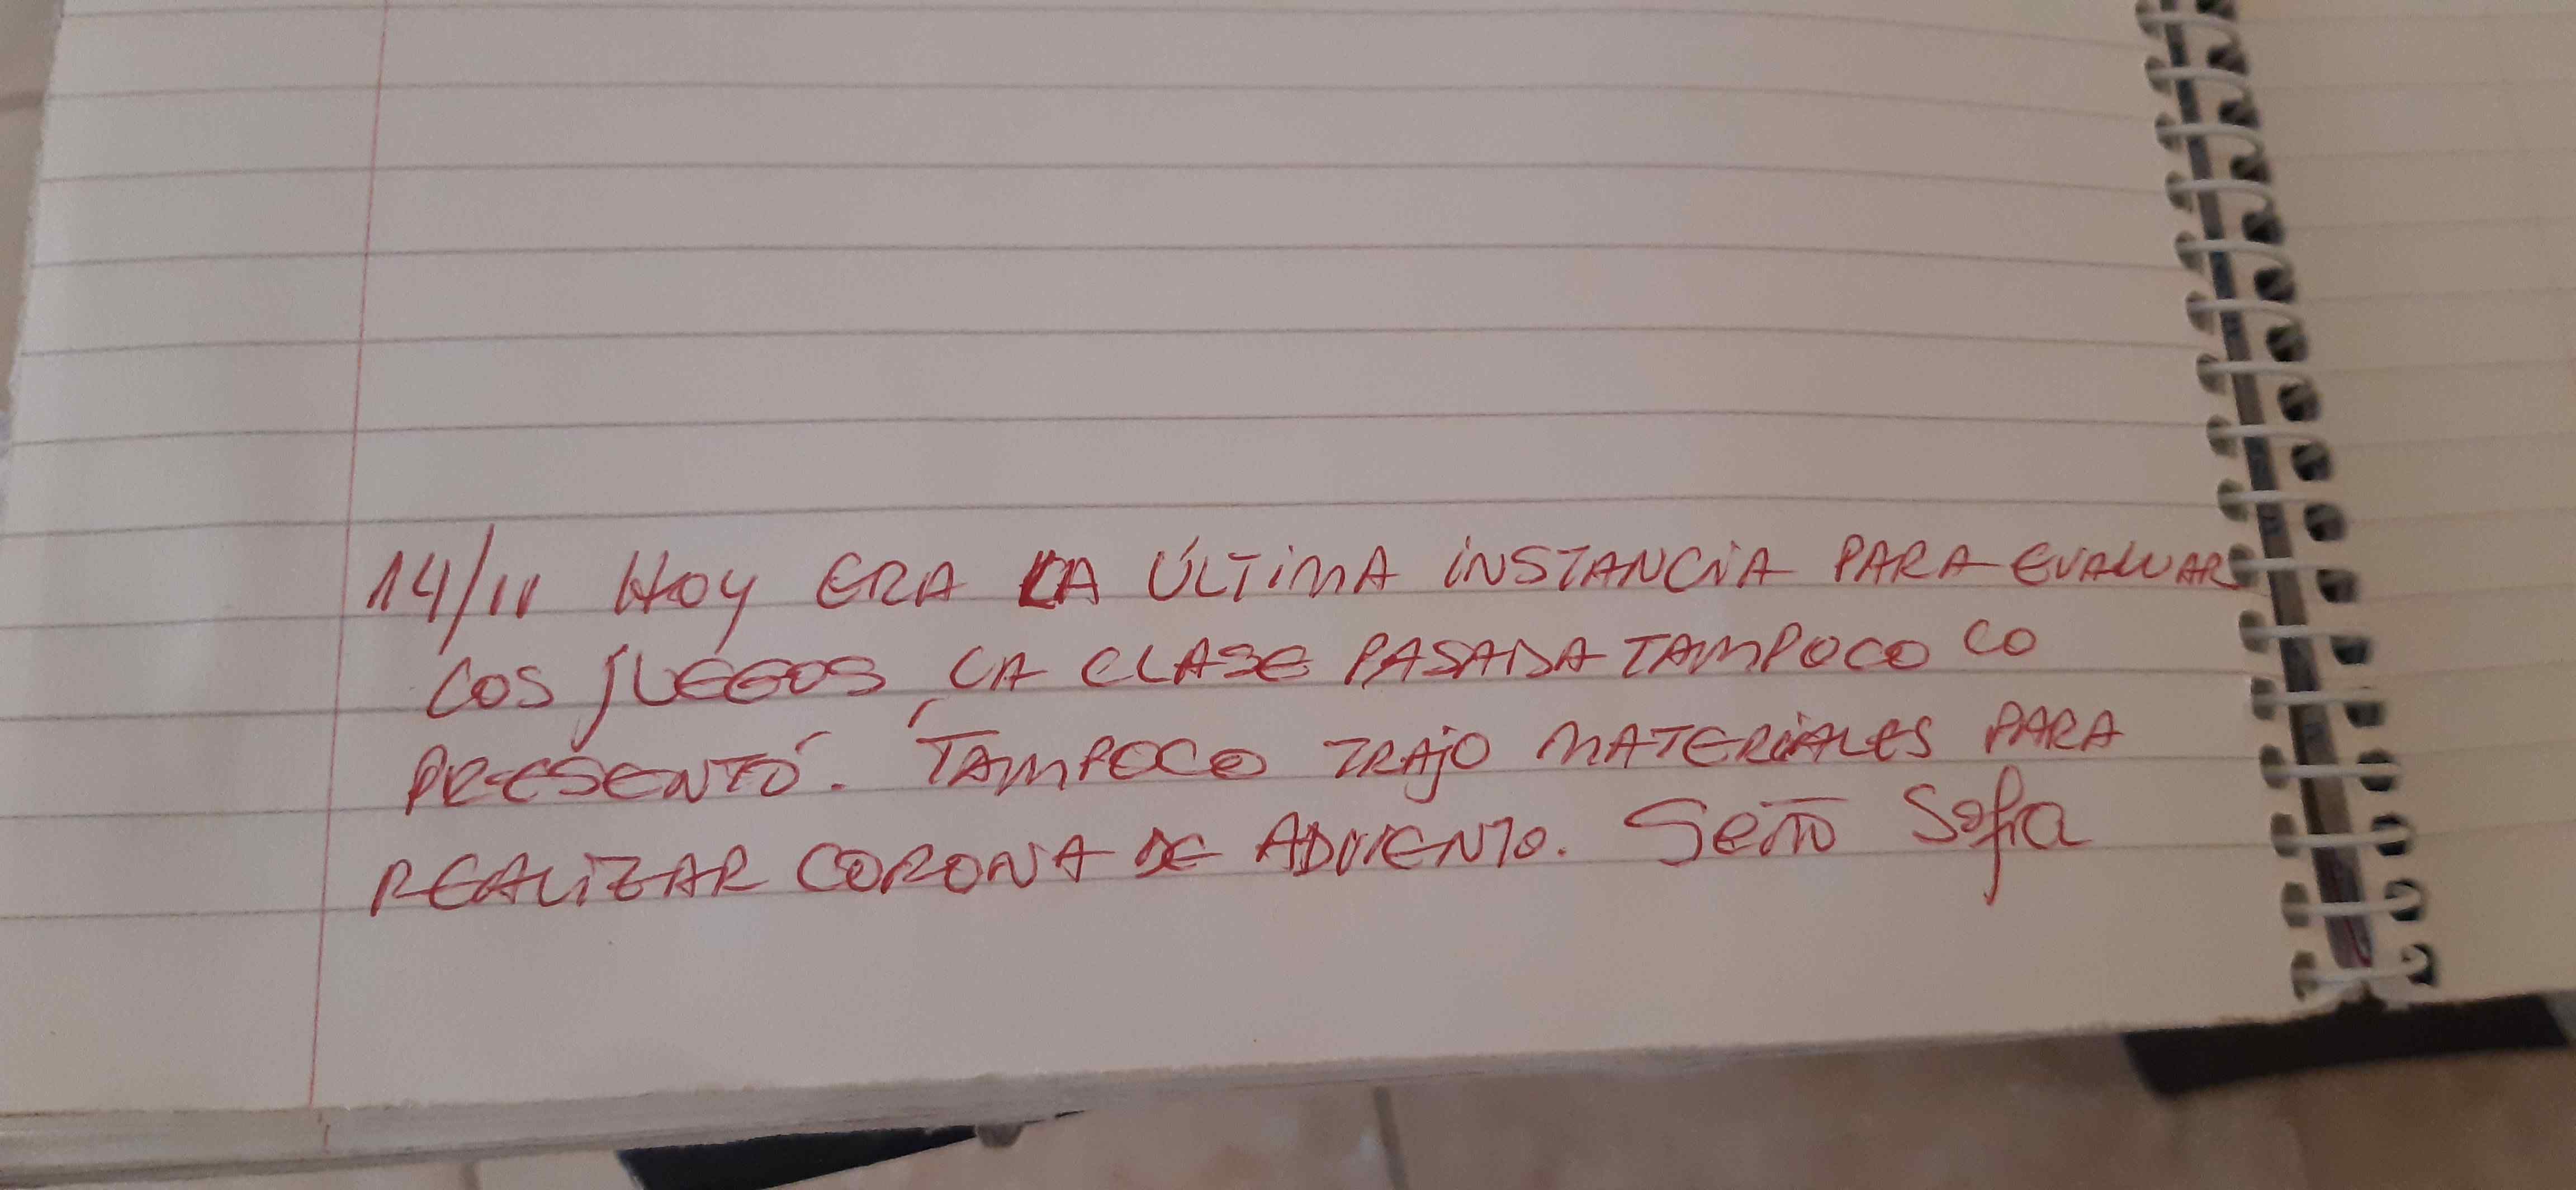 14/11 HOY ERA LA ÚLTIMA INSTANCIA PARA EVALUAR
LOS JUEGOS, LA CLASE PASADA TAMPOCO LO
PRESENTÓ. TAMPOCO TRAJO MATERIALES PARA
REALIZAR CORONA DE ADVIENTO. Seño Sofia